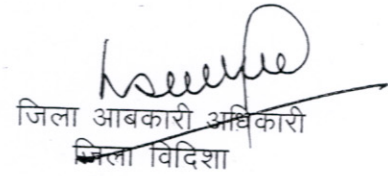 जिला आबकारी अधिकारी
जिला विदिशा